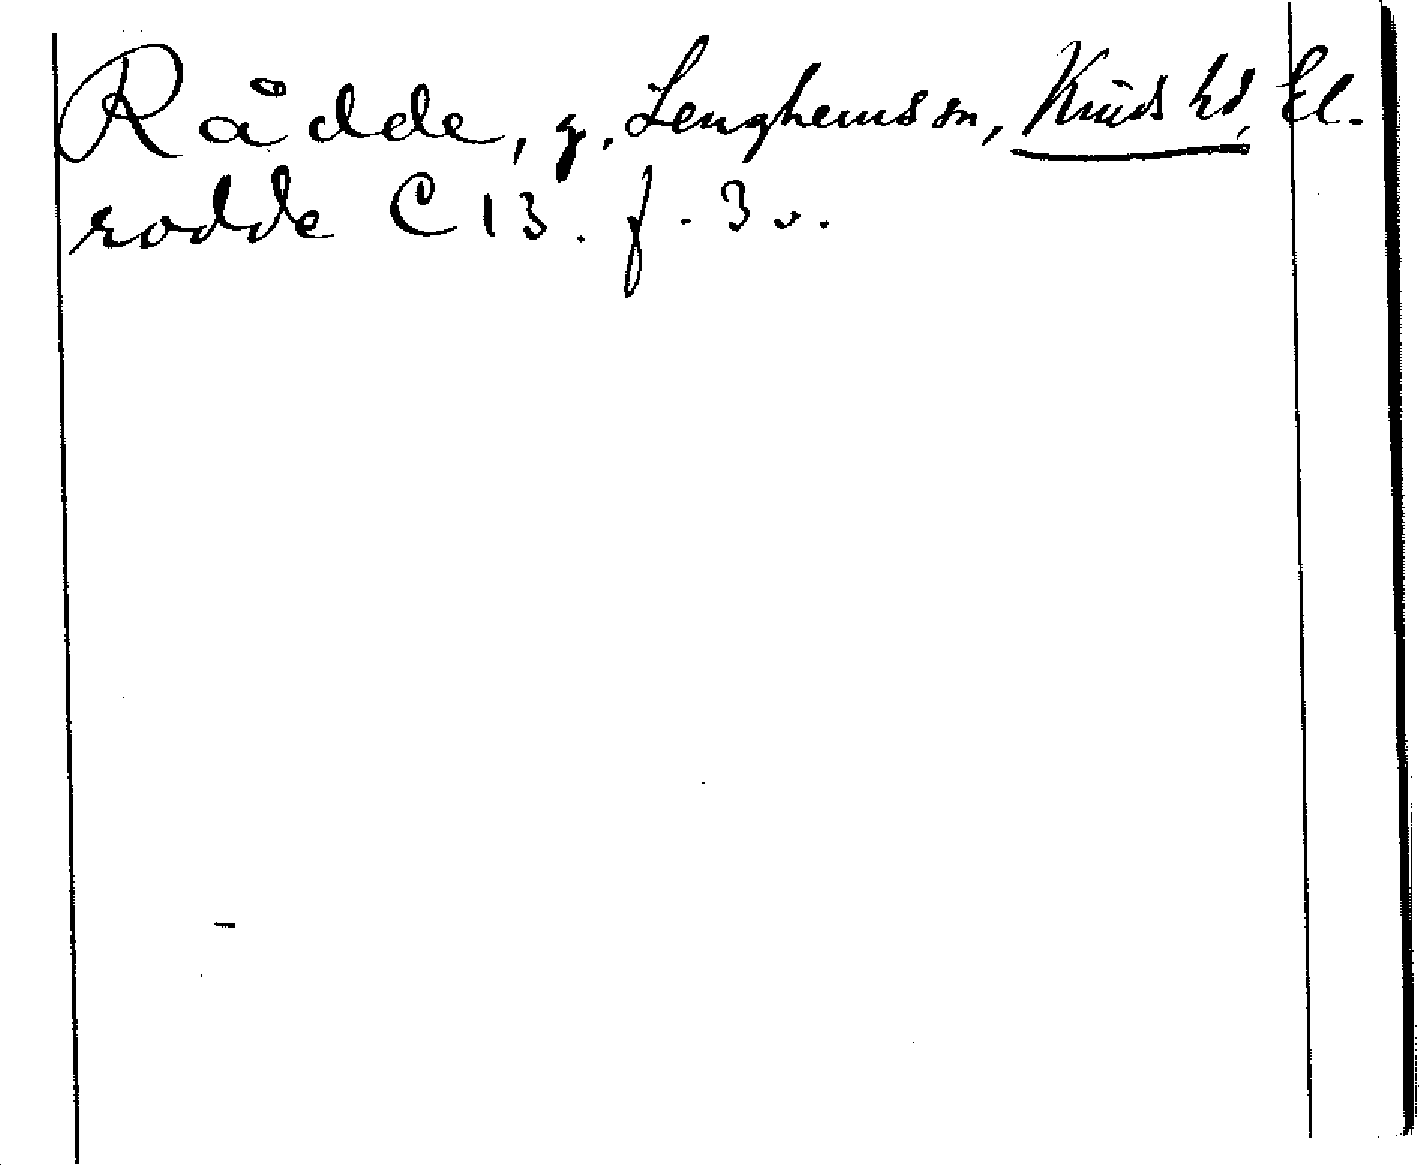 Rådde, g. Lenghems sn, Kinds hd, El.
rodde C 13. f. 3 v.